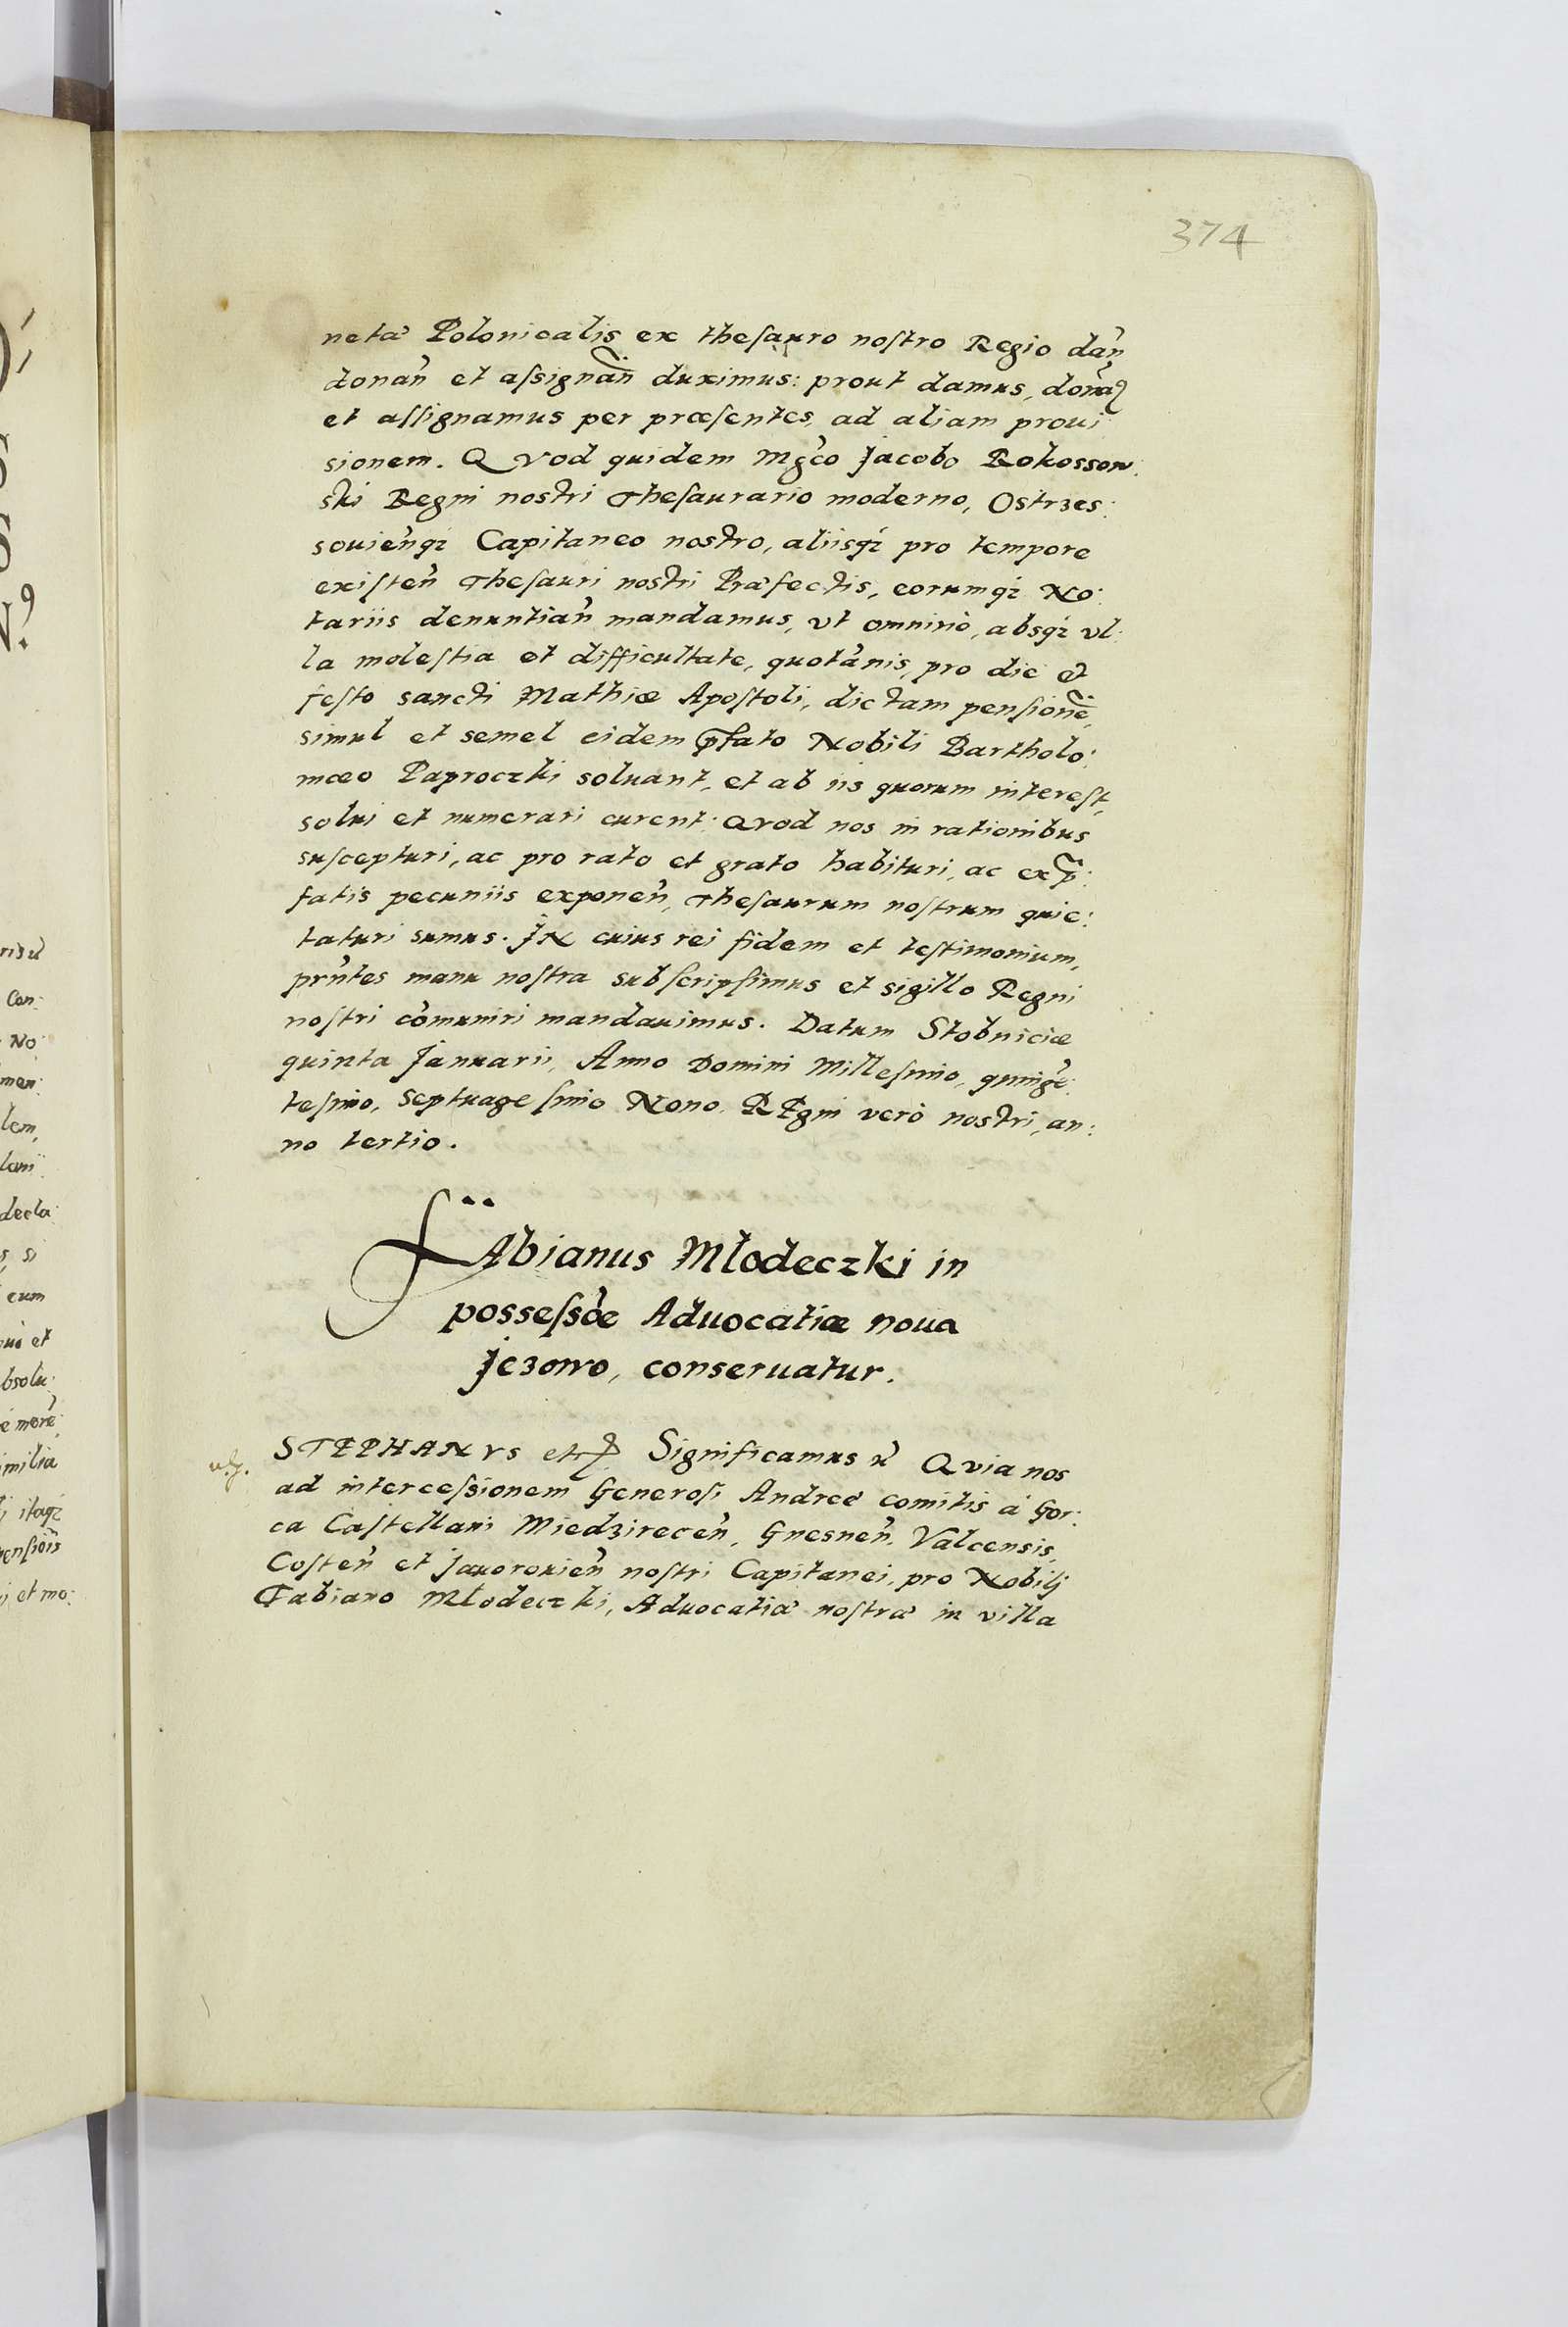 374
netæ Polonicalis ex thesauro nostro Regio dan̄
donan̄ et assignan̄ duximus: prout damus, donam̄
et assignamus per præsentes, ad aliam proui:
sionem. QVod quidem Mgco Jacobo Rokosson:
ski Regni nostri Thesaurario moderno, Ostrzes:
souien̄q; Capitaneo nostro, aliisq; pro tempore
existen̄ Thesauri nostri Præfectis, eorumq; No:
tariis denuntian̄ mandamus, vt omninò, absq; vl:
la molestia et difficultate, quotānis, pro die et
festo sancti Mathiæ Apostoli, dictam pensionē,
simul et semel eidem pfato Nobili Bartholo:
mæo Paproczki soluant, et ab iis quorum interest,
solui et numerari curent: QVod nos in rationibus
suscepturi, ac pro rato et grato habituri, ac ex p:
fatis pecuniis exponen̄, Thesaurum nostrum quie:
taturi sumus. JN cuius rei fidem et testimonium,
pnn̄tes manu nostra subscripsimus et sigillo Regni
nostri cōmuniri mandauimus. Datum Stobniciæ
quinta Januarii, Anno Domini Millesimo, quingē:
tesimo, Septuagesimo Nono. REgni verò nostri, an:
no tertio.
FAbianus Młodeczki in
possessōe Aduocatiæ noua
Jezowo, conseruatur.
STEPHANVS etc Significamus ꝛc QVia nos
ad intercessionem Generosi Andreæ comitis à Gor:
ca Castellani Miedzirecen̄, Gnesnen̄, Valcensis,
Costen̄ et Jauorouien̄ nostri Capitanei, pro Nobilj
Fabiano Młodeczki, Aduocatiæ nostræ in villa